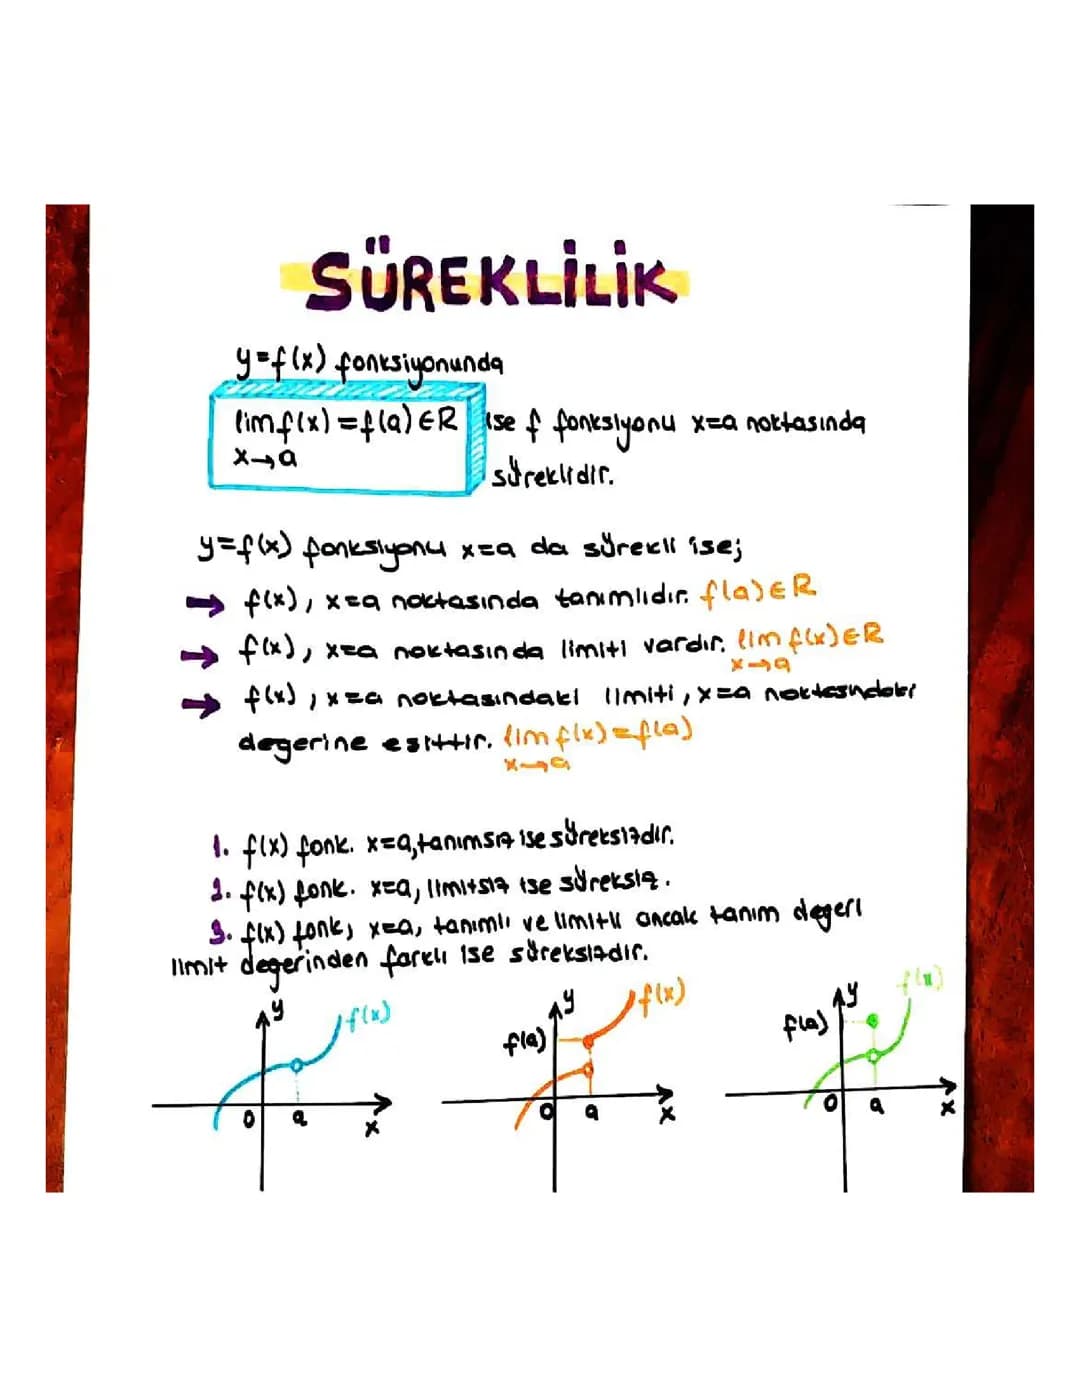 SÜREKLİLİK
y=f(x) fonksiyonunda
lim f(x) = f(a) ∈ R ise f fonksiyonu x=a noktasında
x→a
süreklidir.
y=f(x) fonksiyonu x=a da sürekli ise;
→ f(x), x=a noktasında tanımlıdır. f(a) ∈ R
→ f(x), x=a noktasında limiti vardır. lim f(x) ∈ R
x→a
→ f(x), x=a noktasındaki limiti, x=a noktasındaki
degerine esittir. lim f(x) = f(a)
x→a
1. f(x) fonk. x=a, tanımsız ise süreksizdir.
2. f(x) fonk. x=a, limitsiz ise süreksiz.
3. f(x) fonk, x=a, tanımlı ve limitli ancak tanım degeri
limit degerinden farklı ise süreksizdir.
y f(x)
0 a x
y f(x)
f(a)
0 a x
y f(x)
f(a)
0 a x